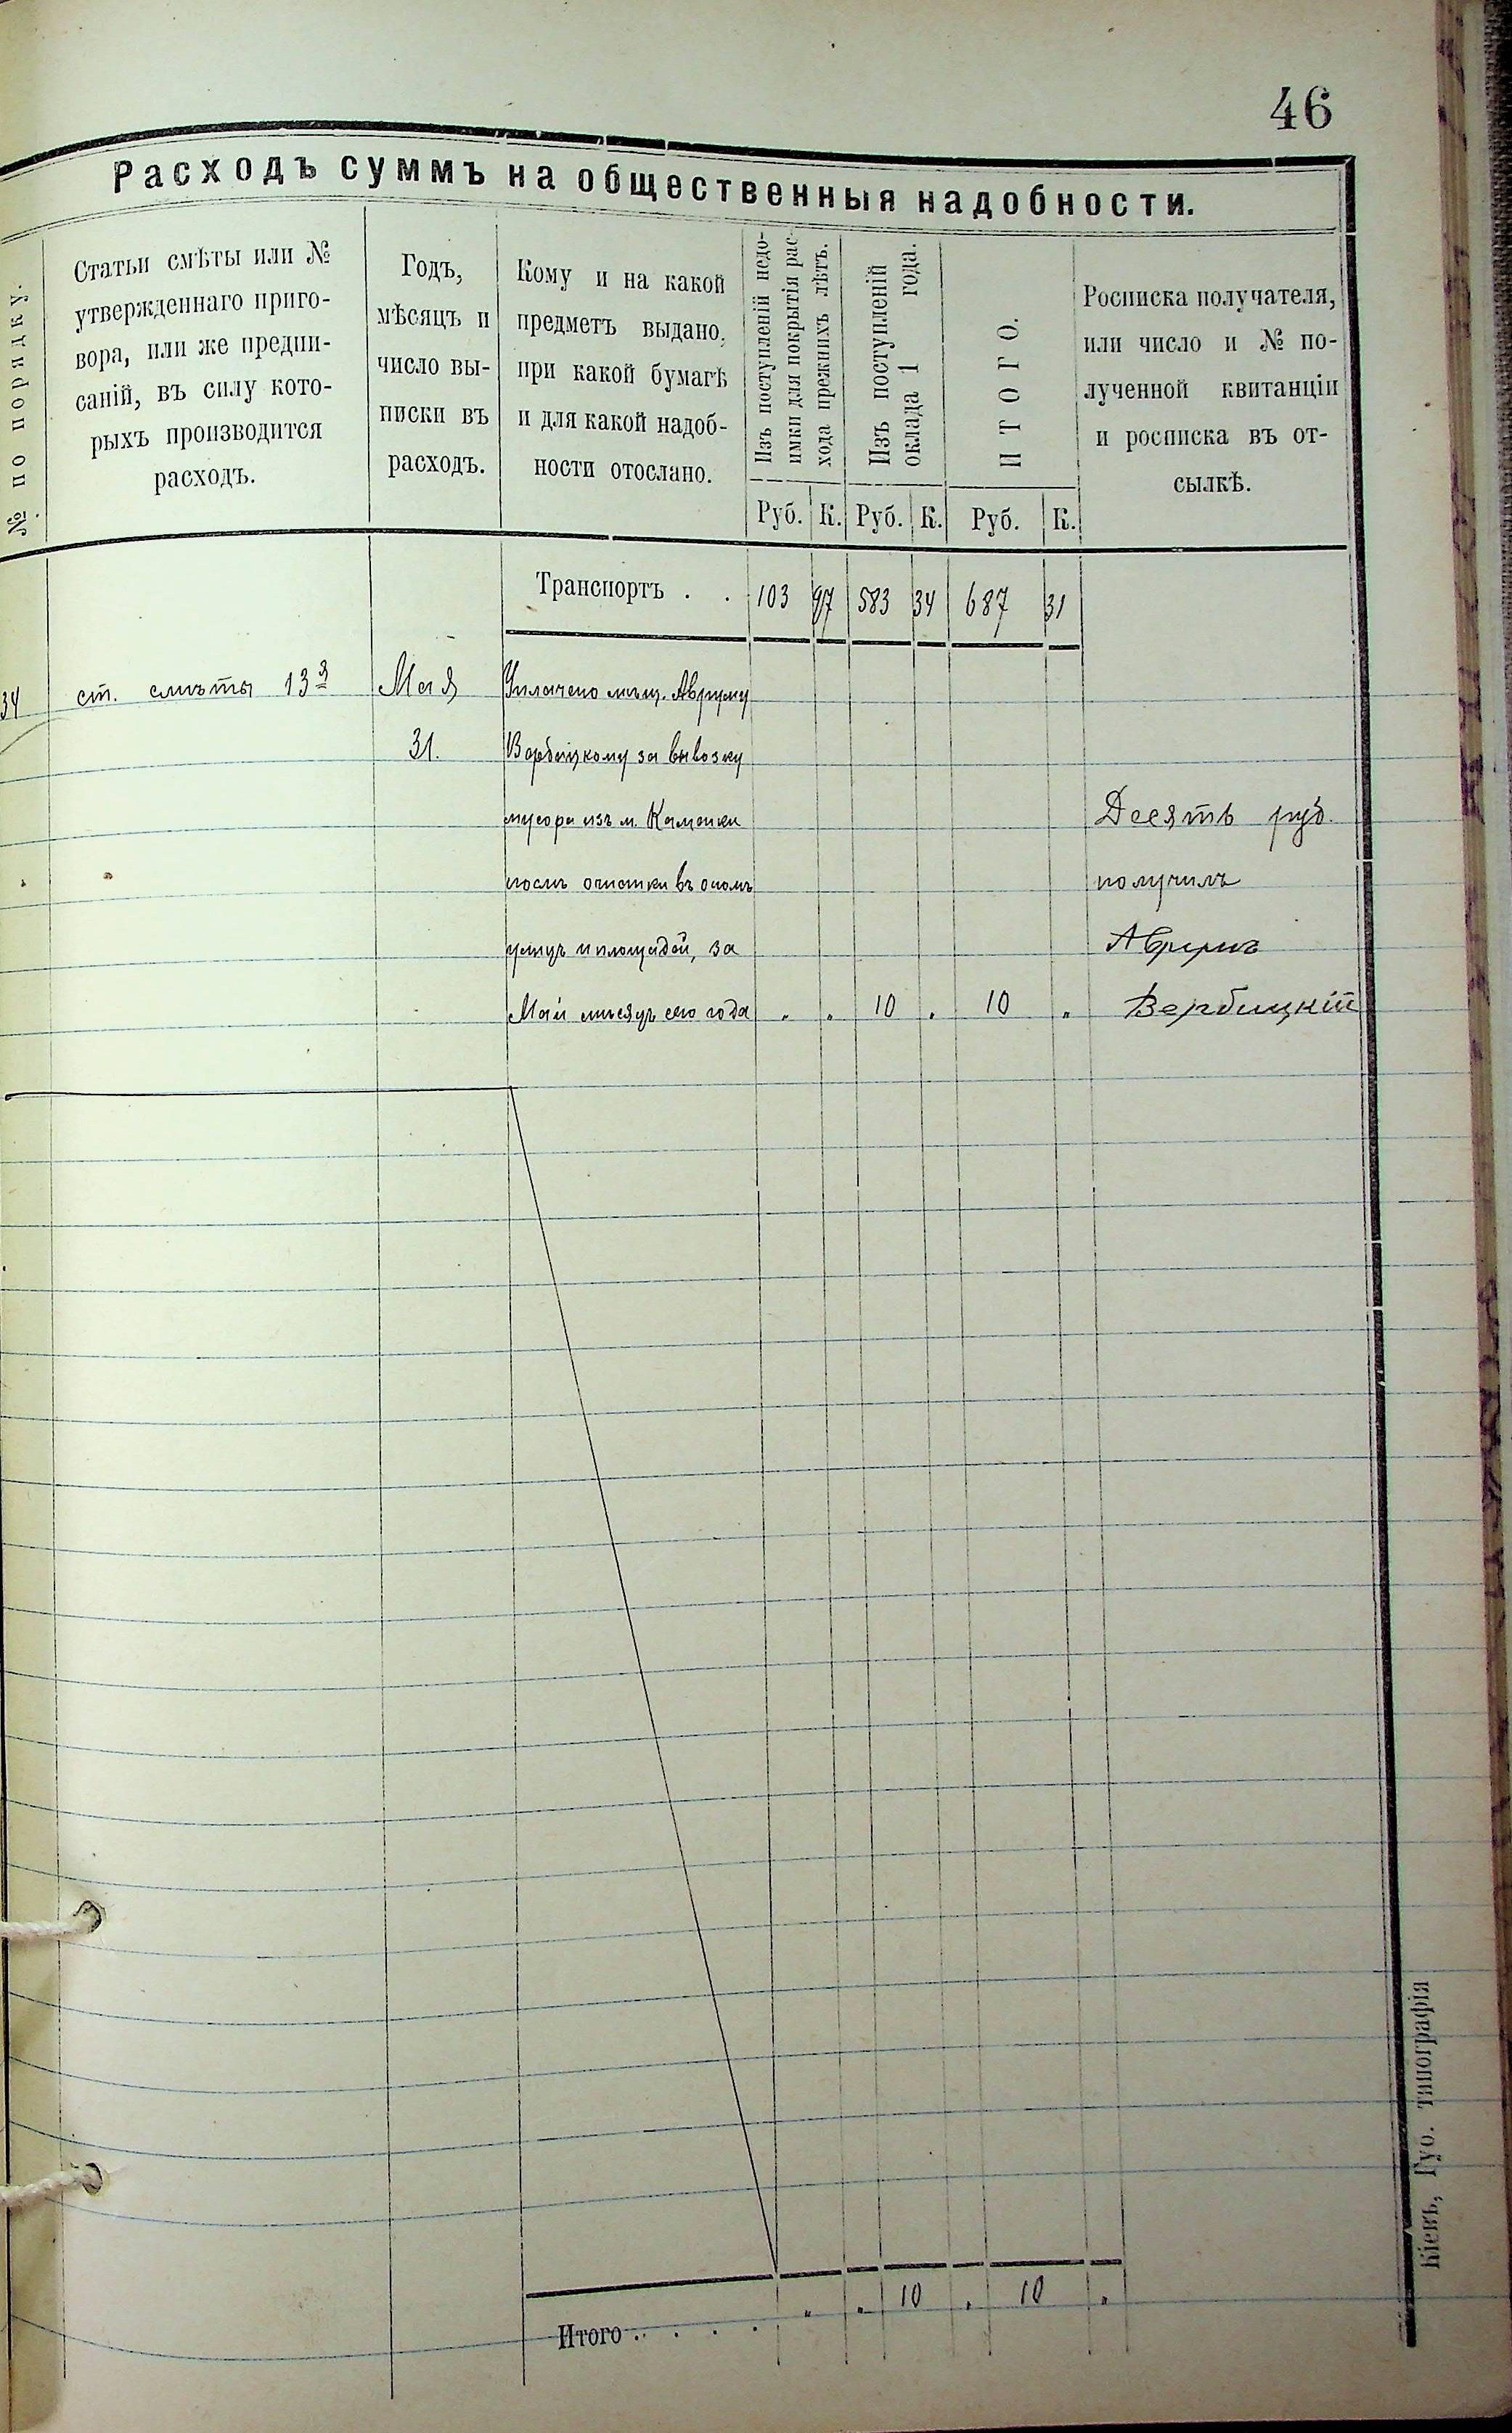 46
Расходъ суммъ на общественныя надобности.
№ по порядку.
Статьи смѣты или №
утвержденнаго приго-
вора, или же предпи-
саній, въ силу кото-
рыхъ производится
расходъ.
Годъ,
мѣсяцъ и
число вы-
писки въ
расходъ.
Кому и на какой
предметъ выдано,
при какой бумагѣ
и для какой надоб-
ности отослано.
Изъ поступленій недо-
имки для покрытія рас-
хода прежнихъ лѣтъ.
Изъ поступленій
оклада 1 года.
ИТОГО.
Росписка получателя,
или число и № по-
лученной квитанціи
и росписка въ от-
сылкѣ.
Руб. К. Руб. К. Руб. К.
Транспортъ . . 103 97 583 34 687 31
34 ст. смѣты 13я Мая Уплачено мѣщ. Авруму
31. Вербицкому за вывозку
мусора изъ м. Каменки Десять руб.
послѣ очистки въ ономъ получилъ
улицъ и площадей, за Аврумъ
Май мѣсяцъ сего года " " 10 " 10 " Вербицкій
Итого . . . . " " 10 " 10 "
Кіевъ, Губ. типографія